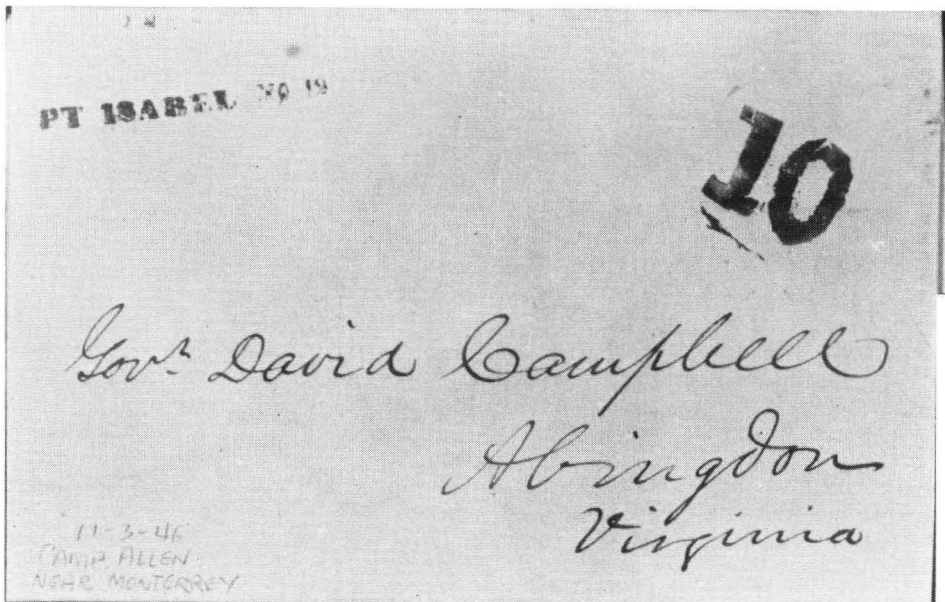 PT ISABEL NO 19
10
Govr. David Campbell
Abingdon
Virginia
11-3-46
CAMP ALLEN
NEAR MONTERREY